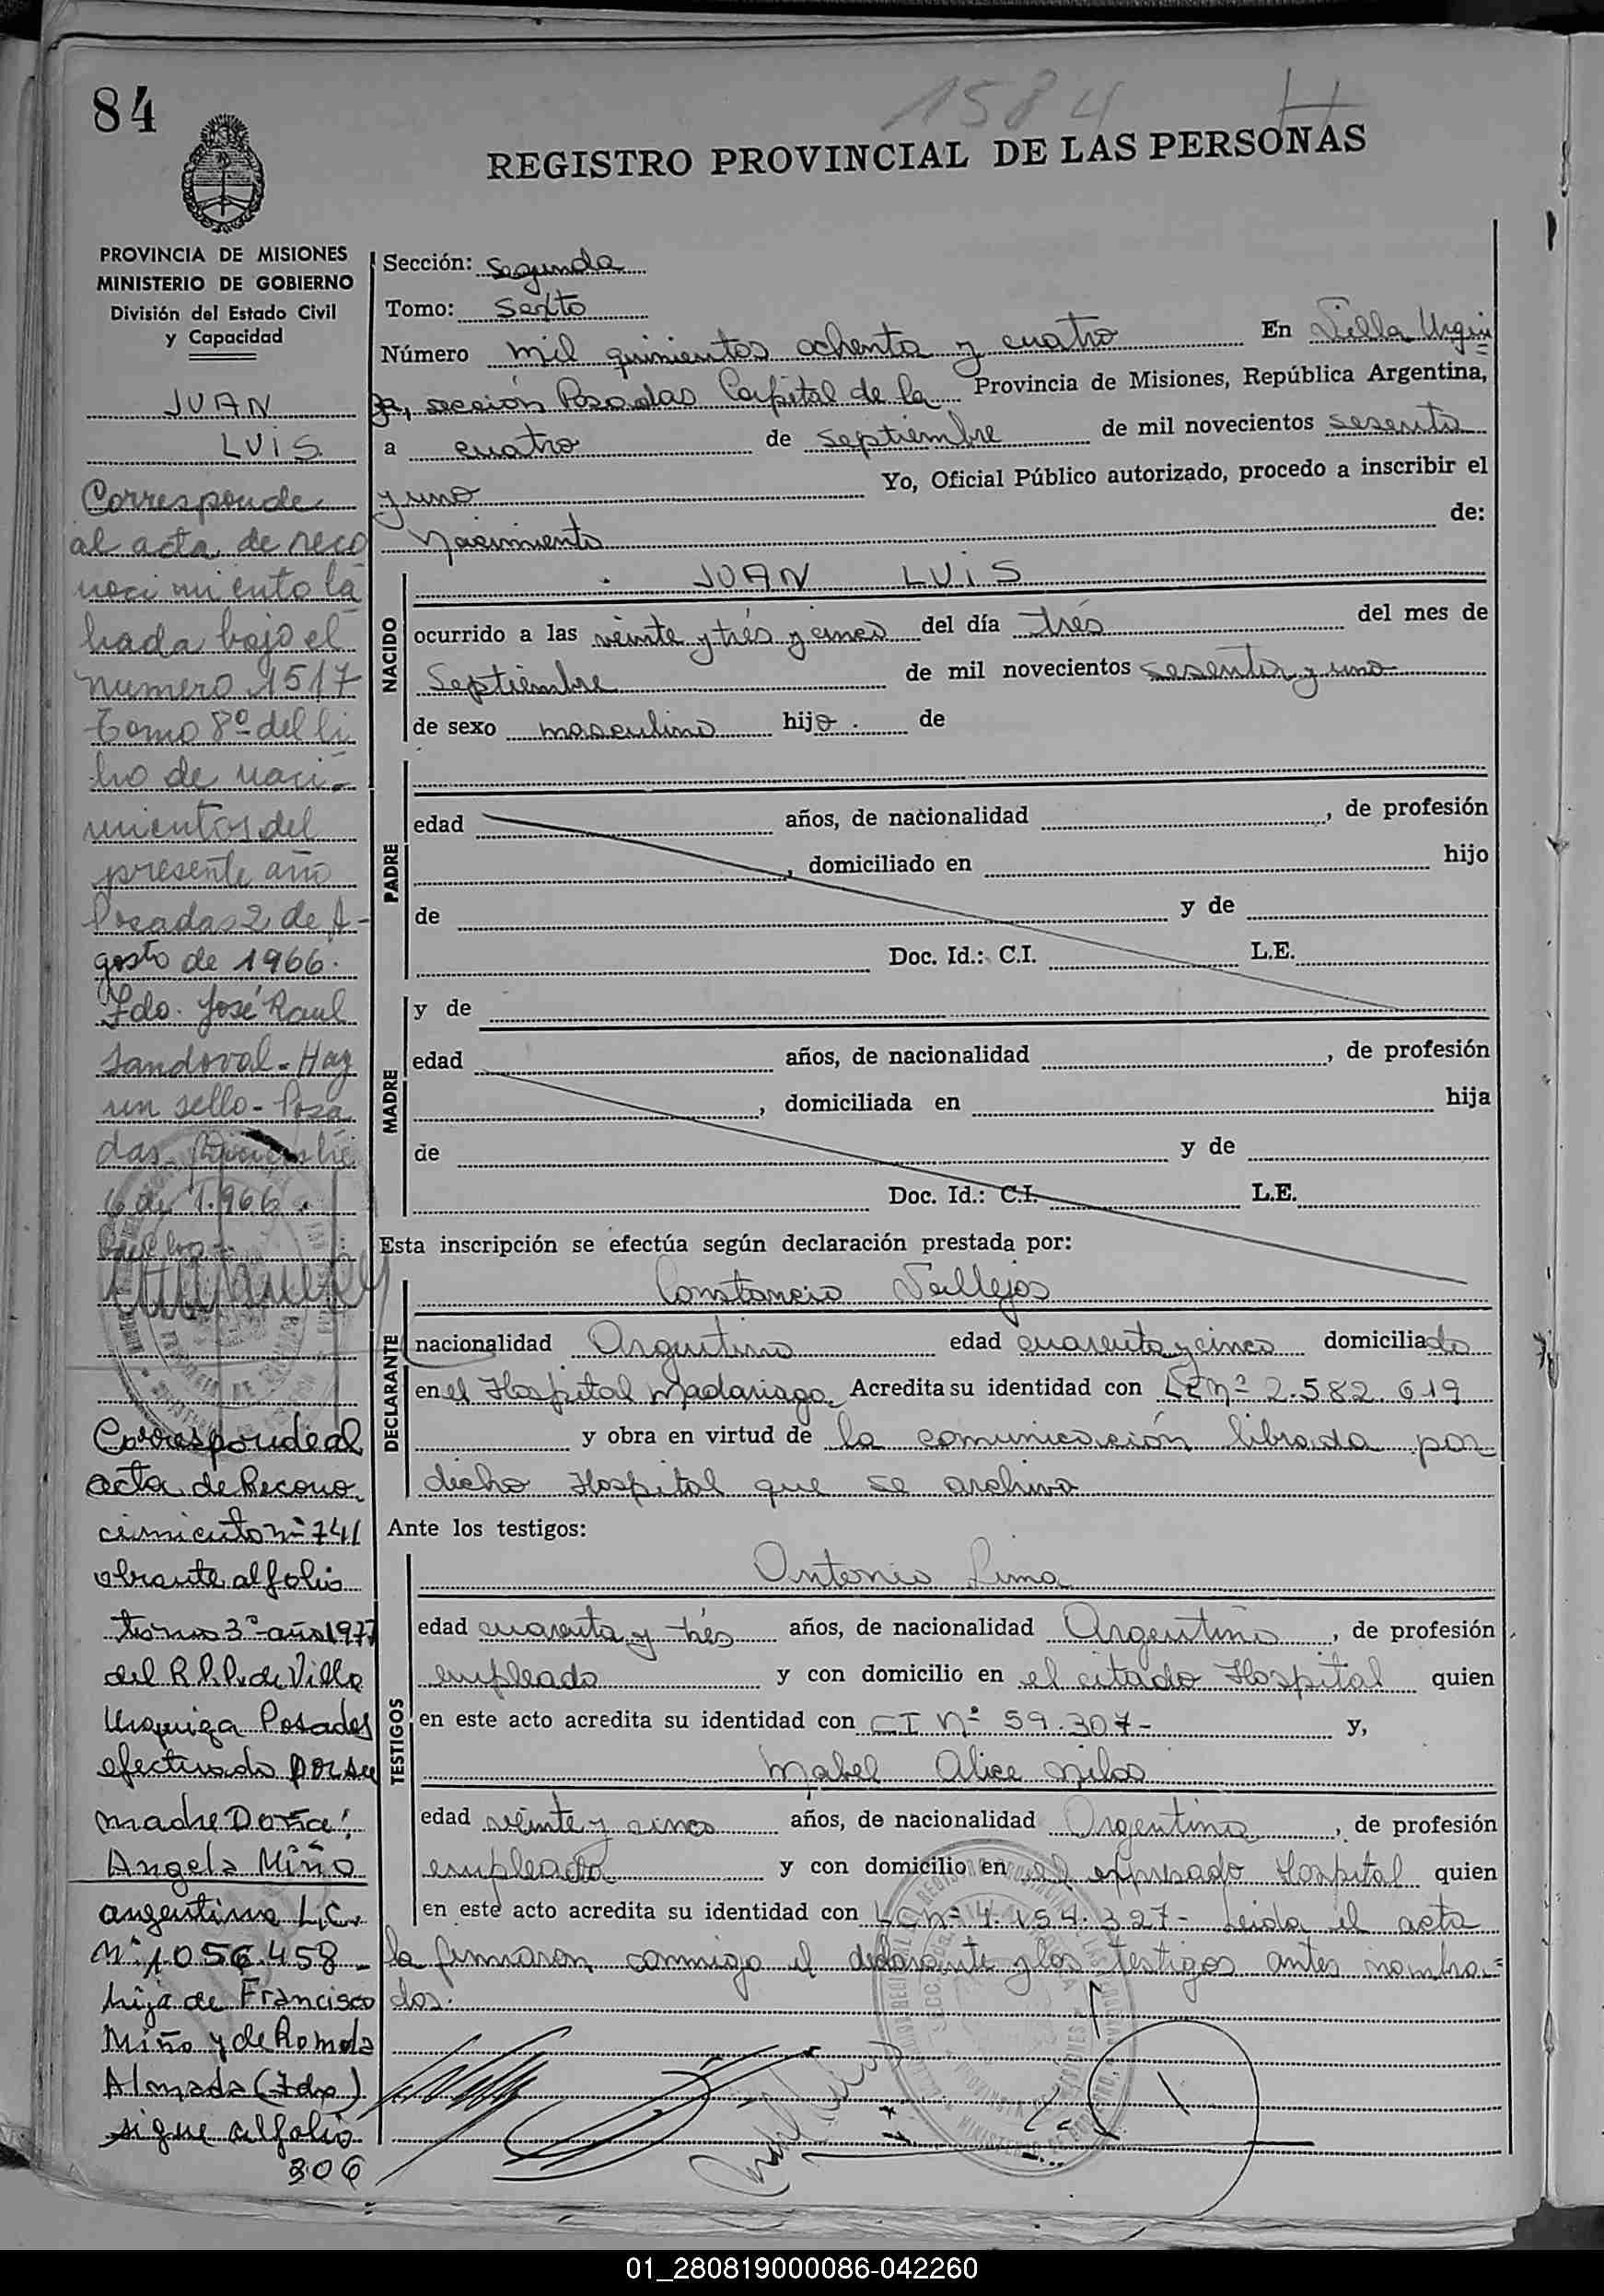 84
1584 H
REGISTRO PROVINCIAL DE LAS PERSONAS
PROVINCIA DE MISIONES
MINISTERIO DE GOBIERNO
División del Estado Civil
y Capacidad
JUAN
LUIS
Corresponde
al acta de reco
nocimiento la
brada bajo el
numero 1517
Tomo 8º del li
bro de naci-
mientos del
presente año
Posadas 2 de A-
gosto de 1966.
Fdo. José Raul
Sandoval - Hay
un sello - Posa
das
6 de 1.966.
Corresponde al
acta de Recono
cimiento nº 741
obrante al folio
tomo 3º año 1977
del R.P.P. de Villa
Urquiza Posadas
efectuado por su
madre Doña:
Angela Miño
argentina L.C.
Nº 1.056.458
hija de Francisco
Miño y de Romola
Almada (Fdo)
sigue al folio
306
Sección: Segunda
Tomo: Sexto
Número mil quinientos ochenta y cuatro En Villa Urqui
za, sección Posadas Capital de la Provincia de Misiones, República Argentina,
a cuatro de septiembre de mil novecientos sesenta
y uno Yo, Oficial Público autorizado, procedo a inscribir el
Nacimiento de:
JUAN LUIS
NACIDO
ocurrido a las veinte y trés y cinco del día trés del mes de
Septiembre de mil novecientos sesenta y uno
de sexo masculino hijo . de
PADRE
edad años, de nacionalidad , de profesión
, domiciliado en hijo
de y de
Doc. Id.: C.I. L.E.
MADRE
y de
edad años, de nacionalidad , de profesión
, domiciliada en hija
de y de
Doc. Id.: C.I. L.E.
Esta inscripción se efectúa según declaración prestada por:
DECLARANTE
Constancio Vallejos
nacionalidad Argentino edad cuarenta y cinco domiciliado
en el Hospital Madariaga Acredita su identidad con LE nº 2.582.619
y obra en virtud de la comunicación librada por
dicho Hospital que se archiva
Ante los testigos:
TESTIGOS
Antonio Lima
edad cuarenta y trés años, de nacionalidad Argentino, de profesión
empleado y con domicilio en el citado Hospital quien
en este acto acredita su identidad con CI Nº 59.307- y,
Mabel Alice
edad veinte y cinco años, de nacionalidad Argentina, de profesión
empleada y con domicilio en el expresado Hospital quien
en este acto acredita su identidad con LC nº 4.154.327- Leida el acta
la firmaron conmigo el declarante y los testigos antes nombra=
dos.
01_280819000086-042260